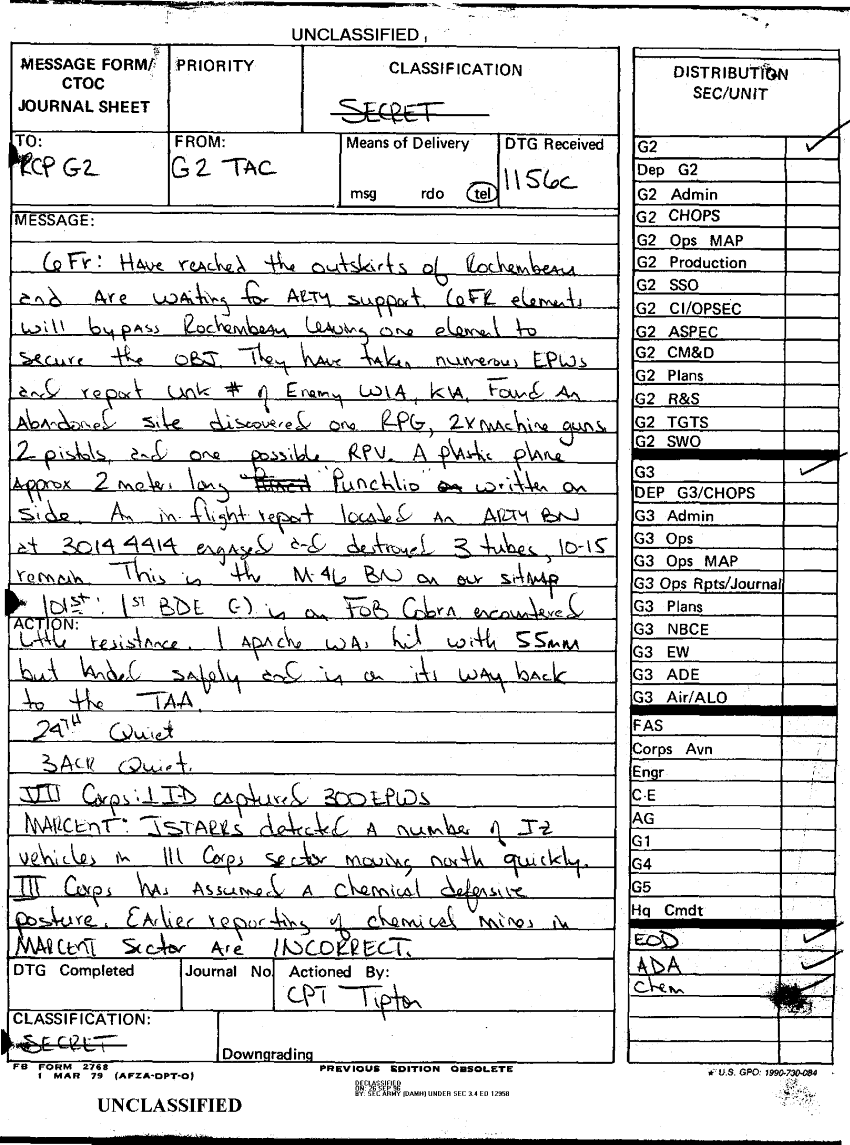 UNCLASSIFIED
MESSAGE FORM/
CTOC
JOURNAL SHEET
PRIORITY
CLASSIFICATION
SECRET
TO:
RCP G2
FROM:
G2 TAC
Means of Delivery
msg rdo tel
DTG Received
1156C
MESSAGE:
6Fr: Have reached the outskirts of Rochembeau
and Are waiting for ARTY support. 6FR elements
will bypass Rochembeau leaving one element to
secure the OBJ. They have taken numerous EPWs
and report unk # of Enemy WIA, KIA. Found An
Abandoned site discovered one RPG, 2x machine guns
2 pistols, and one possible RPV. A plastic plane
Approx 2 meters long "Punchlio" written on
side. An in-flight report located An ARTY BN
at 3014 4414 engaged and destroyed 3 tubes, 10-15
remain. This is the M-46 BN on our sitmap
101st: 1st BDE (-) is on FOB Cobra encountered
ACTION:
Little resistance. 1 Apache was hit with 55mm
but landed safely and is on its way back
to the TAA.
24TH Quiet
3ACR Quiet.
VII Corps: 1 ID captured 300 EPWs
MARCENT: JSTARRS detected A number of IZ
vehicles in III Corps sector moving north quickly.
III Corps has Assumed A chemical defensive
posture. Earlier reporting of chemical mines in
MARCENT Sector Are INCORRECT.
DTG Completed
Journal No.
Actioned By:
CPT Tipton
CLASSIFICATION:
SECRET
Downgrading
FB FORM 2768
1 MAR 79 (AFZA-DPT-O)
PREVIOUS EDITION OBSOLETE
DECLASSIFIED
ON: 26 SEP 96
BY: SEC ARMY (DAMH) UNDER SEC 3.4 EO 12958
UNCLASSIFIED
DISTRIBUTION
SEC/UNIT
G2
Dep G2
G2 Admin
G2 CHOPS
G2 Ops MAP
G2 Production
G2 SSO
G2 CI/OPSEC
G2 ASPEC
G2 CM&D
G2 Plans
G2 R&S
G2 TGTS
G2 SWO
G3
DEP G3/CHOPS
G3 Admin
G3 Ops
G3 Ops MAP
G3 Ops Rpts/Journal
G3 Plans
G3 NBCE
G3 EW
G3 ADE
G3 Air/ALO
FAS
Corps Avn
Engr
C-E
AG
G1
G4
G5
Hq Cmdt
EOD
ADA
Chem
U.S. GPO: 1990-730-084